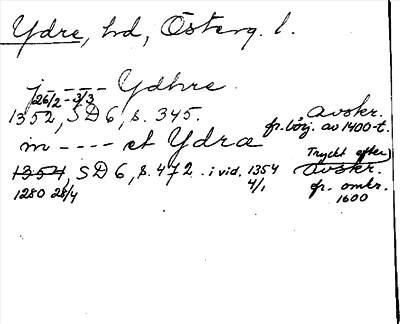 Ydre, hd, Österg. l.
j - - - - Ydhre
26/2 - 3/3
1352, SD 6, s. 345. Avskr.
fr. börj. av 1400-t.
m - - - - et Ydra
Tryckt efter
1354, SD 6, s. 472. i vid. 1354 Avskr.
1280 28/4 4/1 fr. omkr.
1600